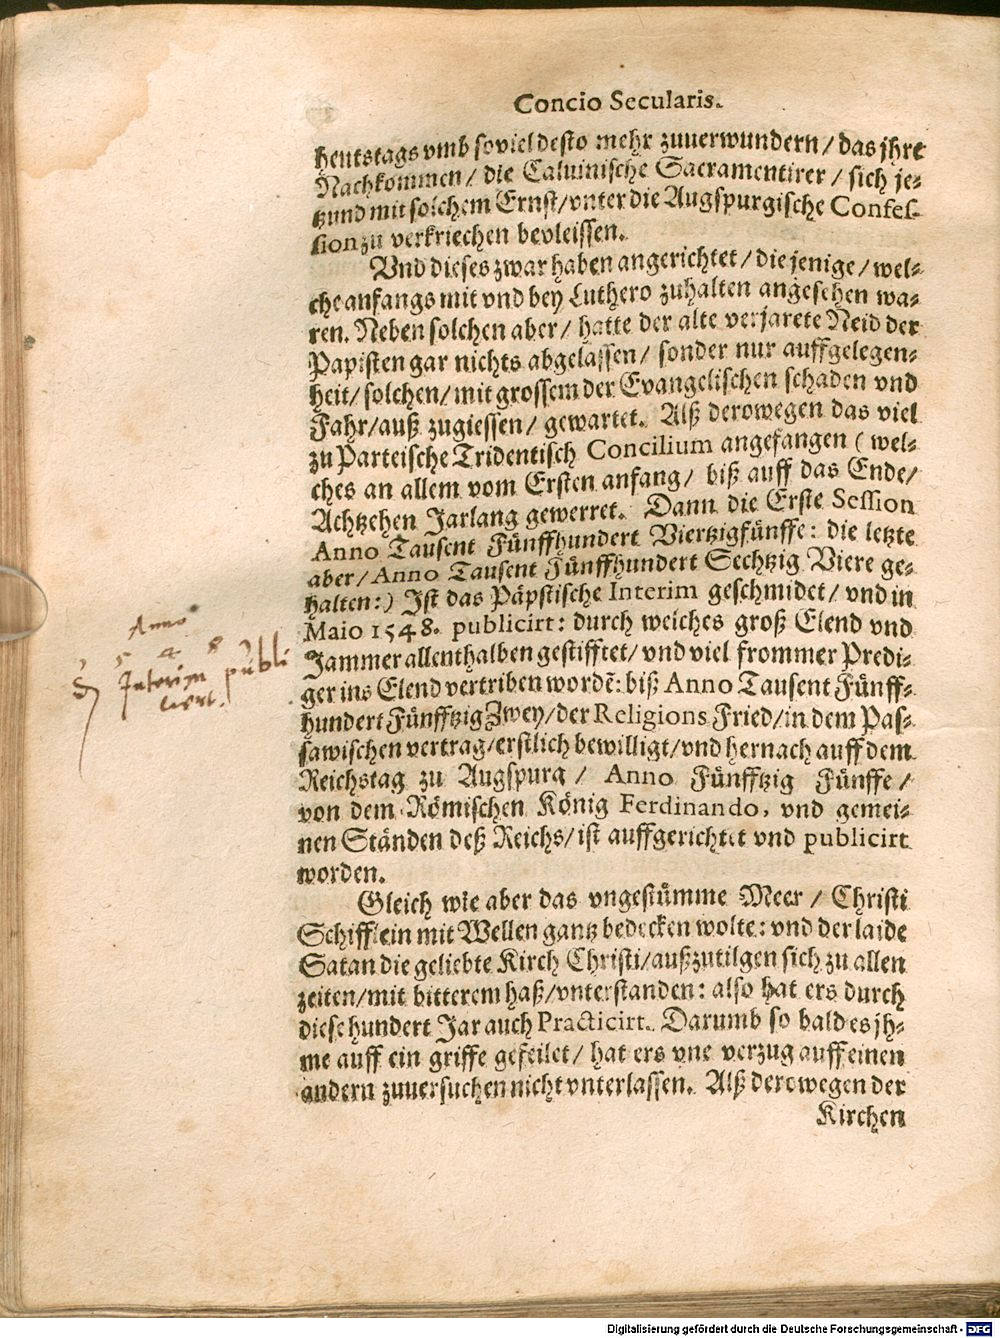 Concio Secularis.
heutstags vmb soviel desto mehr zuuerwundern / das jhre
Nachkommen / die Caluinische Sacramentirer / sich je-
tzund mit solchem Ernst / vnter die Augspurgische Confes-
sion zu verkriechen bevleissen.
Vnd dieses zwar haben angerichtet / die jenige / wel-
che anfangs mit vnd bey Luthero zuhalten angesehen wa-
ren. Neben solchen aber / hatte der alte verjarete Neid der
Papisten gar nichts abgelassen / sonder nur auffgelegen-
heit / solchen / mit grossem der Evangelischen schaden vnd
Fahr / auß zugiessen / gewartet. Alß derowegen das viel
zu Parteische Tridentisch Concilium angefangen ( wel-
ches an allem vom Ersten anfang / biß auff das Ende /
Achtzehen Jarlang gewerret. Dann die Erste Session
Anno Tausent Fünffhundert Viertzigfünffe: die letzte
aber / Anno Tausent Fünffhundert Sechtzig Viere ge-
halten:) Ist das Päpstische Interim geschmidet / vnd in
Maio 1548. publicirt: durch welches groß Elend vnd
Jammer allenthalben gestifftet / vnd viel frommer Predi-
ger ins Elend vertriben wordẽ: biß Anno Tausent Fünff-
hundert Fünfftzig Zwey / der Religions Fried / in dem Pas-
sawischen vertrag / erstlich bewilligt / vnd hernach auff dem
Reichstag zu Augspurg / Anno Fünfftzig Fünffe /
von dem Römischen König Ferdinando, vnd gemei-
nen Ständen deß Reichs / ist auffgerichtet vnd publicirt
worden.
Gleich wie aber das vngestümme Meer / Christi
Schifflein mit Wellen gantz bedecken wolte: vnd der laide
Satan die geliebte Kirch Christi / außzutilgen sich zu allen
zeiten / mit bitterem haß / vnterstanden: also hat ers durch
diese hundert Jar auch Practicirt. Darumb so bald es jh-
me auff ein griffe gefeilet / hat ers vne verzug auff einen
andern zuuersuchen nicht vnterlassen. Alß derowegen der
Kirchen
Anno
5 4 8
Interim publi
cirt.
Digitalisierung gefördert durch die Deutsche Forschungsgemeinschaft - DFG